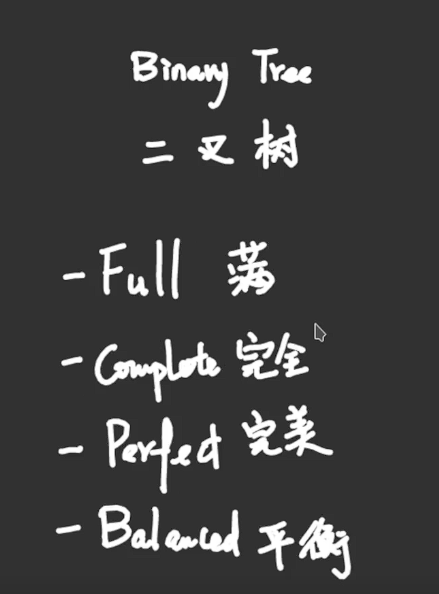 Binary Tree
二叉树
- Full 满
- Complete 完全
- Perfect 完美
- Balanced 平衡